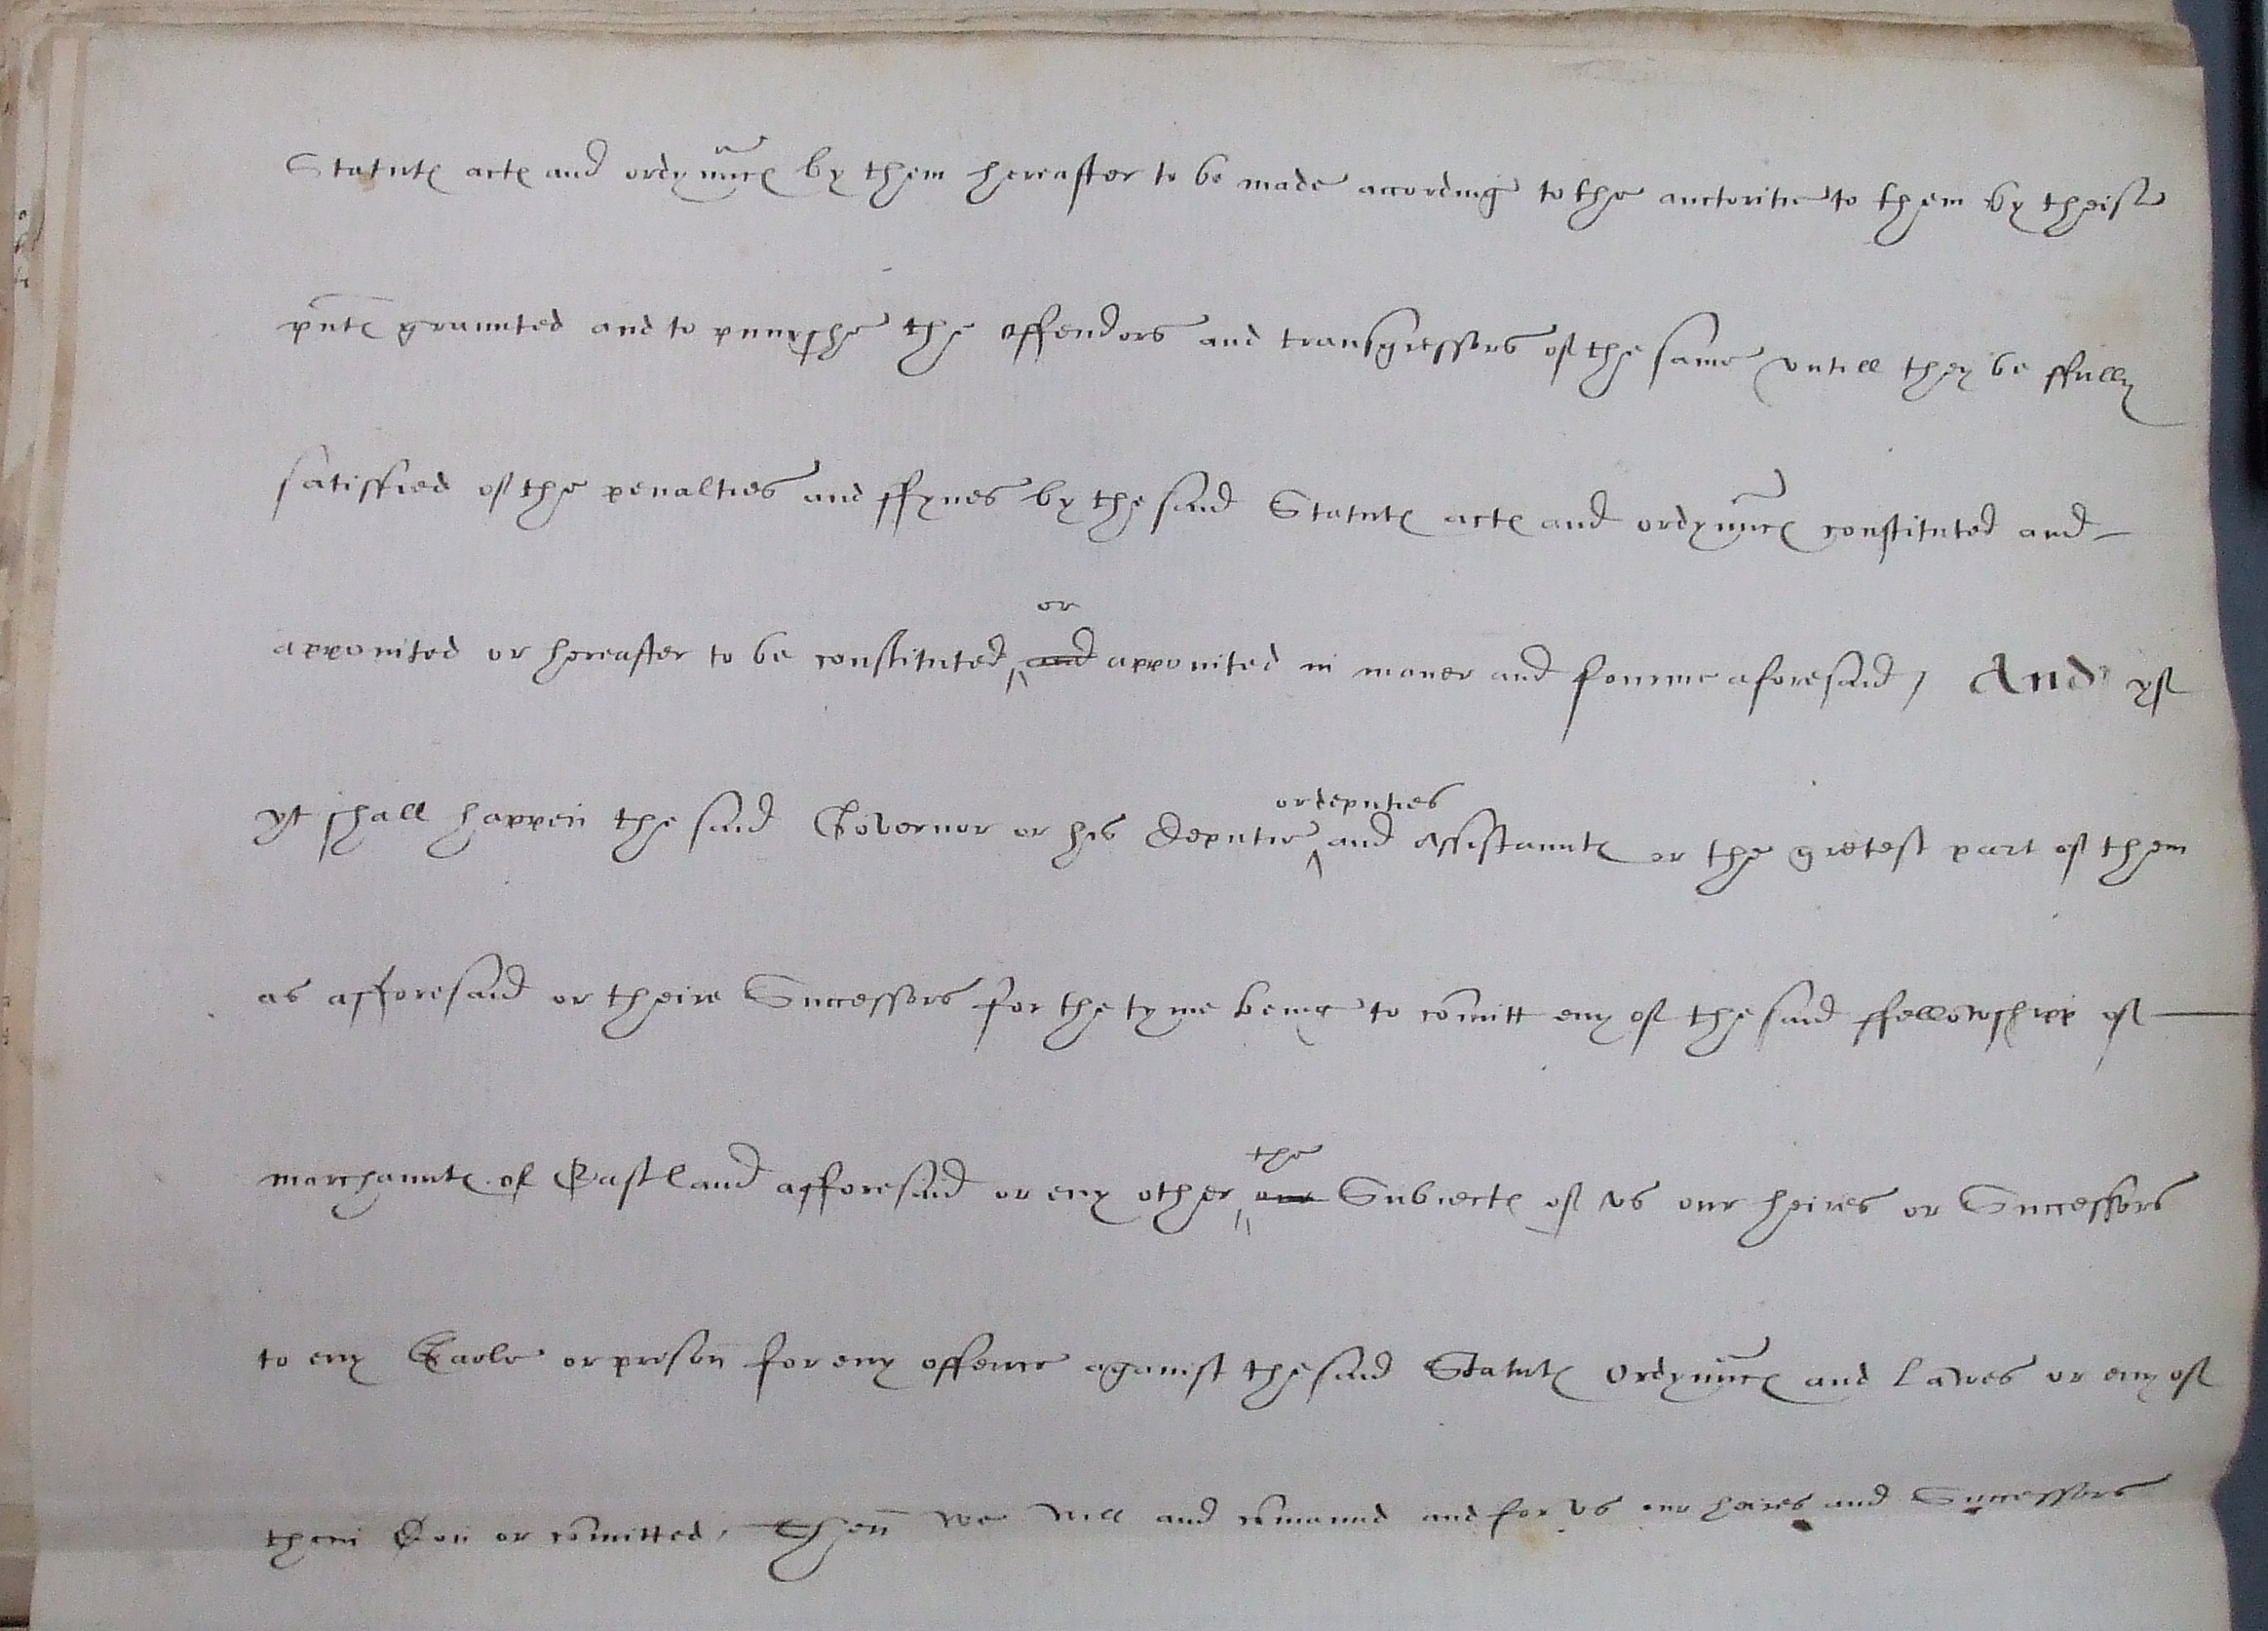 Statutes actes and ordynnces by them hereafter to be made according to the auctoritie to them by theise
pntes graunted and to punyshe the offendors and transgressors of the same vntill they be ffully
satisfied of the penalties and ffynes by the said Statutes actes and ordynnces constituted and
appointed or hereafter to be constituted or and appointed in maner and fourme aforesaid / And yf
yt shall happen the said Governor or his deputie or deputies and assistauntes or the gretest part of them
as afforesaid or theire Successors for the tyme beinge to comitt eny of the said ffellowshipp of
marchauntes of Eastland afforesaid or eny other the our Subiectes of vs our heires or Successors
to eny Gaole or preson for eny offence against the said Statutes ordynnces and lawes or eny of
them don or comitted, Then we will and comaund and for vs our heires and Successors